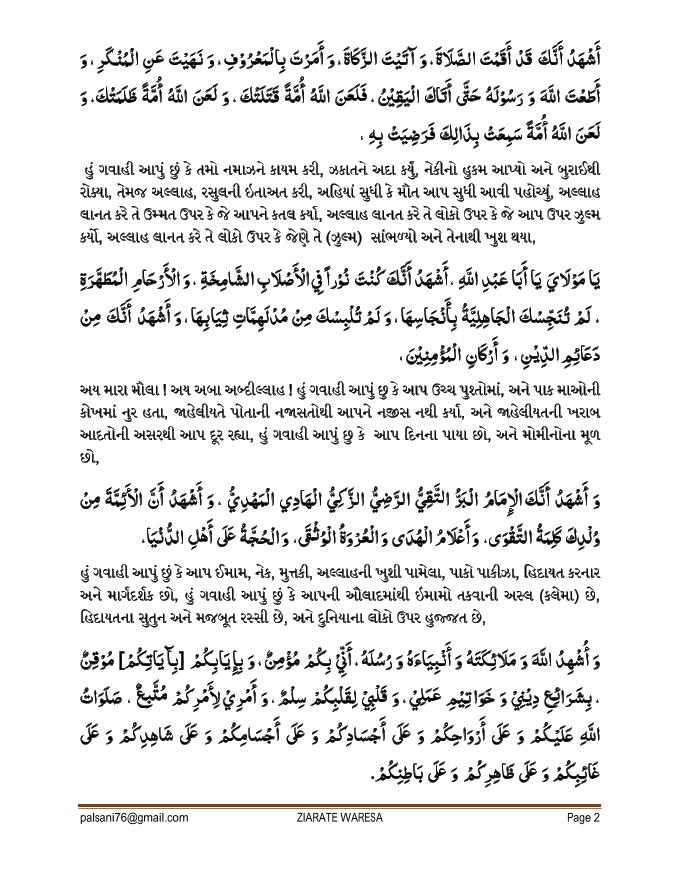 أَشْهَدُ أَنَّكَ قَدْ أَقَمْتَ الصَّلَاةَ، وَ آتَيْتَ الزَّكَاةَ، وَ أَمَرْتَ بِالْمَعْرُوفِ، وَ نَهَيْتَ عَنِ الْمُنْكَرِ، وَ
أَطَعْتَ اللهَ وَ رَسُوْلَهُ حَتَّى أَتَاكَ الْيَقِيْنُ، فَلَعَنَ اللهُ أُمَّةً قَتَلَتْكَ، وَ لَعَنَ اللهُ أُمَّةً ظَلَمَتْكَ، وَ
لَعَنَ اللهُ أُمَّةً سَمِعَتْ بِذَالِكَ فَرَضِيَتْ بِهِ ،
હું ગવાહી આપું છું કે તમો નમાઝને કાયમ કરી, ઝકાતને અદા કર્યું, નેકીનો હુકમ આપ્યો અને બુરાઈથી
રોક્યા, તેમજ અલ્લાહ, રસુલની ઇતાઅત કરી, અહિયાં સુધી કે મૌત આપ સુધી આવી પહોચ્યું, અલ્લાહ
લાનત કરે તે ઉમ્મત ઉપર કે જે આપને કતલ કર્યા, અલ્લાહ લાનત કરે તે લોકો ઉપર કે જે આપ ઉપર ઝુલ્મ
કર્યો, અલ્લાહ લાનત કરે તે લોકો ઉપર કે જેણે તે (ઝુલ્મ) સાંભળ્યો અને તેનાથી ખુશ થયા,
يَا مَوْلَايَ يَا أَبَا عَبْدِ اللهِ ،أَشْهَدُ أَنَّكَ كُنْتَ نُوْراً فِي الْأَصْلَابِ الشَّامِخَةِ ، وَ الْأَرْحَامِ الْمُطَهَّرَةِ
، لَمْ تُنَجِّسْكَ الْجَاهِلِيَّةُ بِأَنْجَاسِهَا، وَ لَمْ تُلْبِسْكَ مِنْ مُدْلَهِمَّاتِ ثِيَابِهَا، وَ أَشْهَدُ أَنَّكَ مِنْ
دَعَائِمِ الدِّيْنِ ، وَ أَرْكَانِ الْمُؤْمِنِيْنَ ،
અય મારા મૌલા ! અય અબા અબ્દીલ્લાહ ! હું ગવાહી આપું છુ કે આપ ઉચ્ચ પુશ્તોમાં, અને પાક માઓની
કોખમાં નુર હતા, જાહેલીયતે પોતાની નજાસતોથી આપને નજીસ નથી કર્યા, અને જાહેલીયતની ખરાબ
આદતોની અસરથી આપ દૂર રહ્યા, હું ગવાહી આપું છુ કે આપ દિનના પાયા છો, અને મોમીનોના મૂળ
છો,
وَ أَشْهَدُ أَنَّكَ الْإِمَامُ الْبَرُّ التَّقِيُّ الرَّضِيُّ الزَّكِيُّ الْهَادِي الْمَهْدِيُّ ، وَ أَشْهَدُ أَنَّ الْأَئِمَّةَ مِنْ
وُلْدِكَ كَلِمَةُ التَّقْوَى، وَ أَعْلَامُ الْهُدَى وَ الْعُرْوَةُ الْوُثْقَى، وَ الْحُجَّةُ عَلَى أَهْلِ الدُّنْيَا،
હું ગવાહી આપું છું કે આપ ઈમામ, નેક, મુત્તકી, અલ્લાહની ખુશી પામેલા, પાકો પાકીઝા, હિદાયત કરનાર
અને માર્ગદર્શક છો, હું ગવાહી આપું છું કે આપની ઔલાદમાંથી ઇમામો તકવાની અસ્લ (કલેમા) છે,
હિદાયતના સુતુન અને મજબૂત રસ્સી છે, અને દુનિયાના લોકો ઉપર હુજ્જત છે,
وَ أُشْهِدُ اللهَ وَ مَلَائِكَتَهُ وَ أَنْبِيَاءَهُ وَ رُسُلَهُ، أَنِّيْ بِكُمْ مُؤْمِنٌ، وَ بِإِيَابِكُمْ [بِآيَاتِكُمْ] مُوْقِنٌ
، بِشَرَائِعِ دِيْنِيْ وَ خَوَاتِيْمِ عَمَلِيْ، وَ قَلْبِيْ لِقَلْبِكُمْ سِلْمٌ، وَ أَمْرِيْ لِأَمْرِكُمْ مُتَّبِعٌ ، صَلَوَاتُ
اللهِ عَلَيْكُمْ وَ عَلَى أَرْوَاحِكُمْ وَ عَلَى أَجْسَادِكُمْ وَ عَلَى أَجْسَامِكُمْ وَ عَلَى شَاهِدِكُمْ وَ عَلَى
غَائِبِكُمْ وَ عَلَى ظَاهِرِكُمْ وَ عَلَى بَاطِنِكُمْ.
palsani76@gmail.com ZIARATE WARESA Page 2